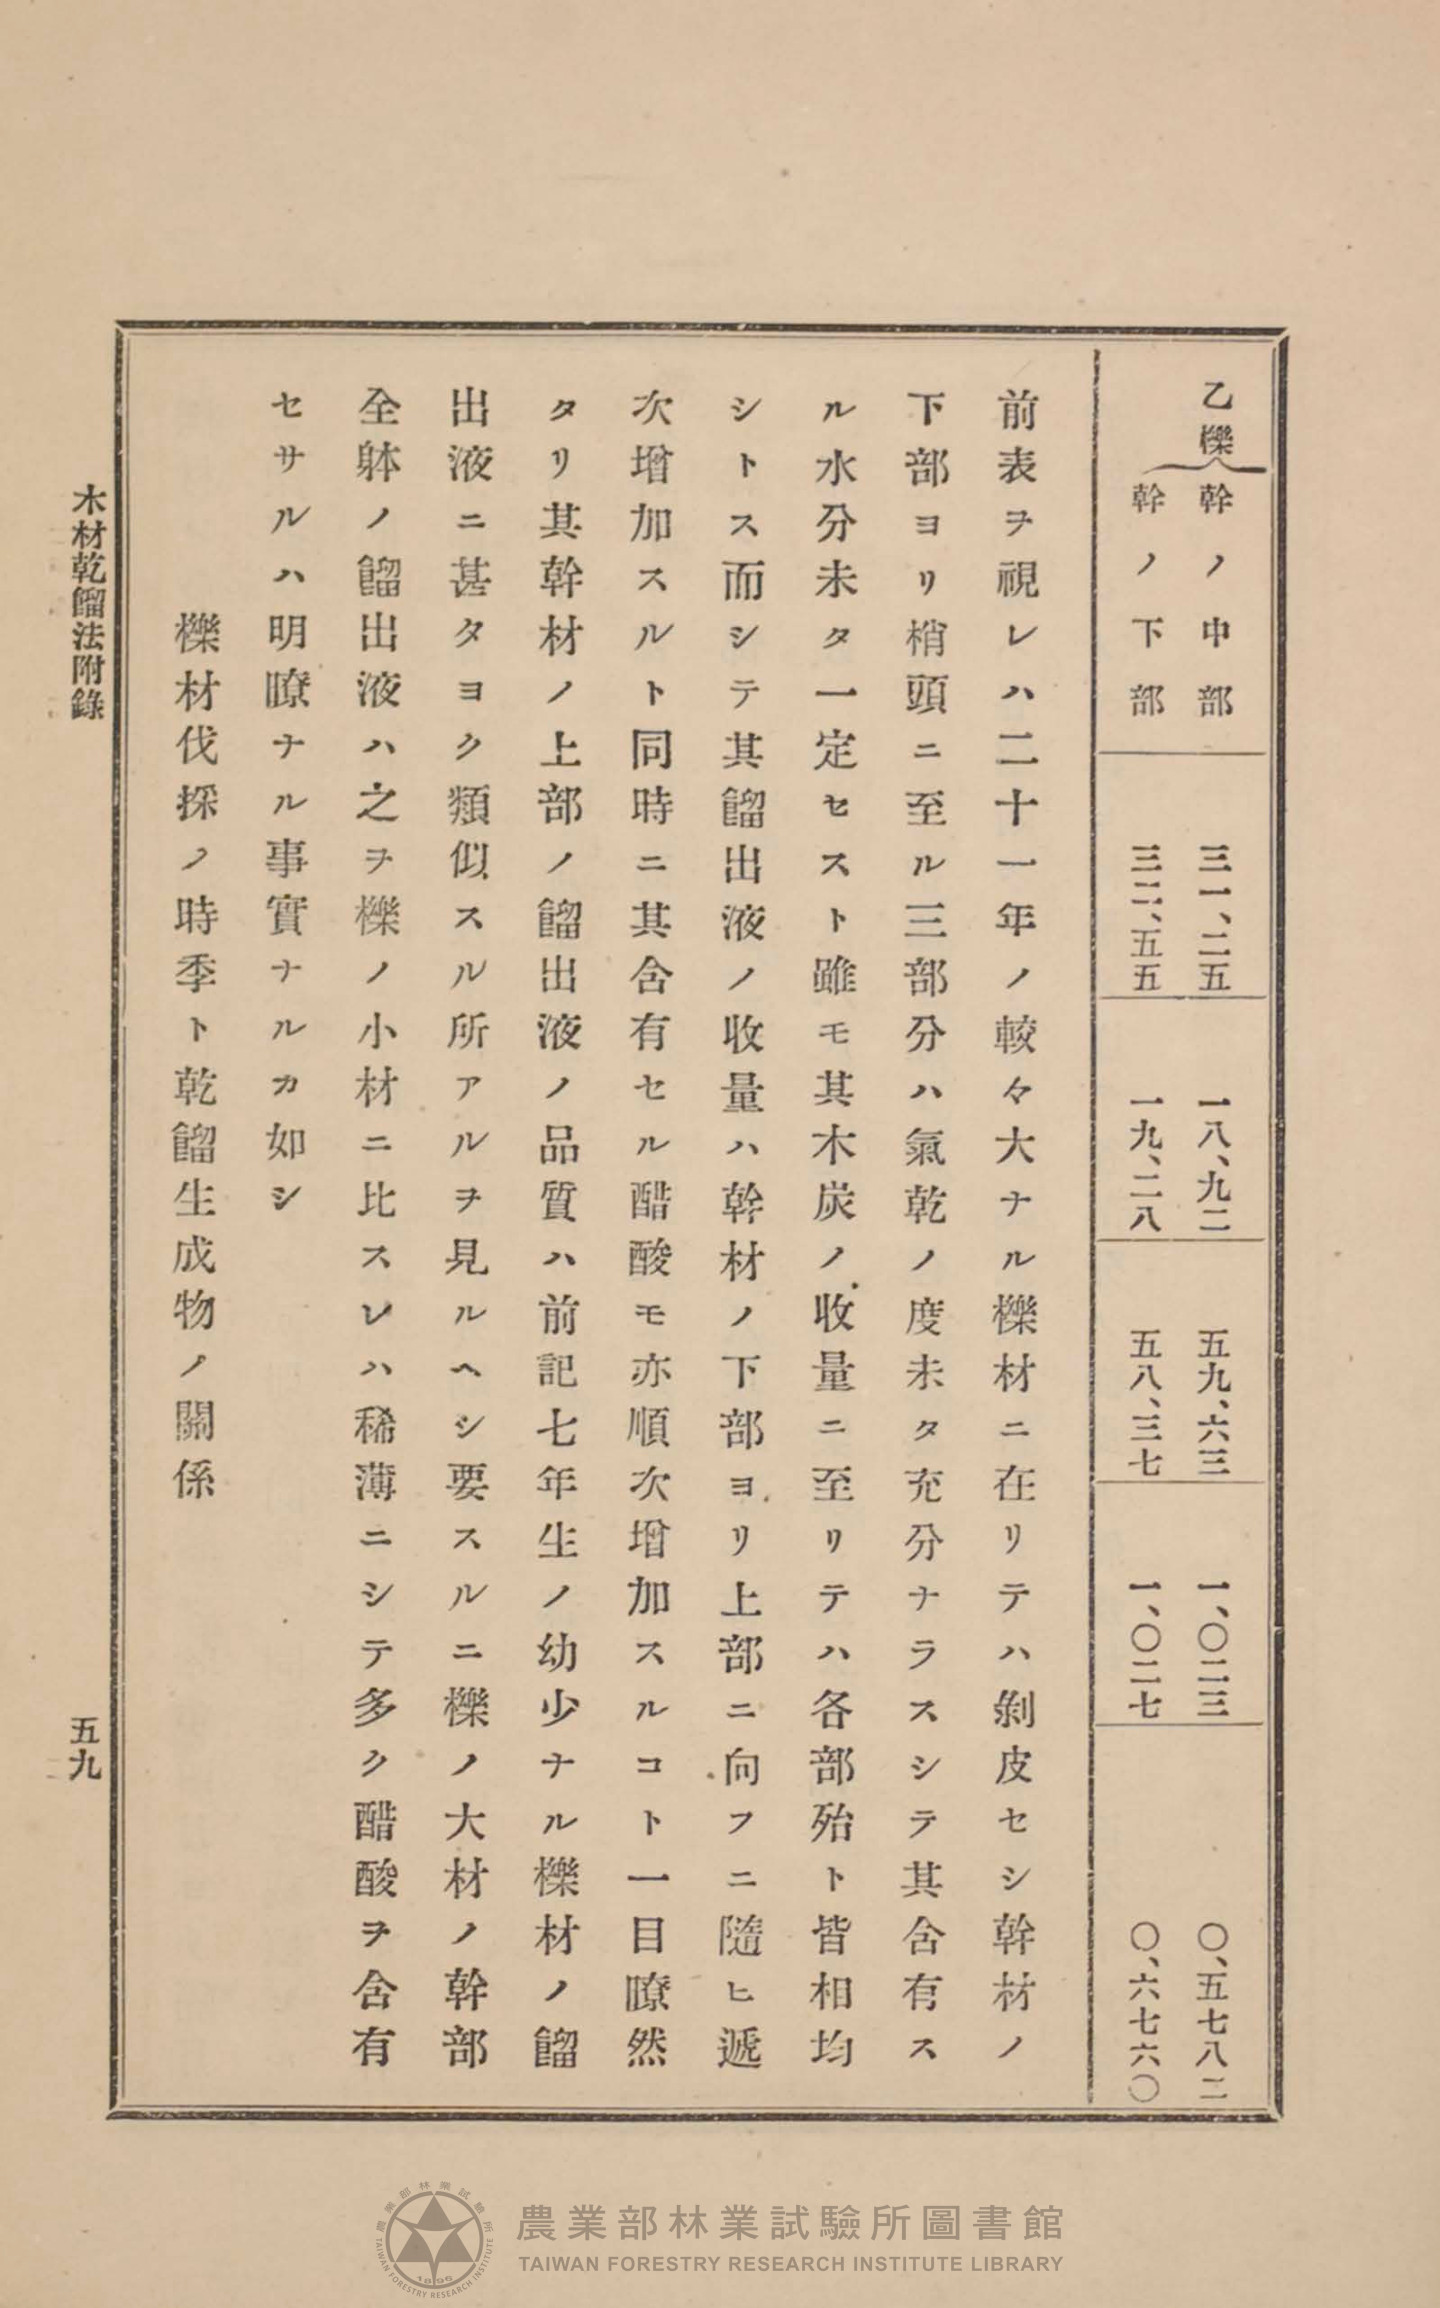 乙櫟
幹ノ中部 三一、二五 一八、九二 五九、六三 一、〇二三 〇、五七八二
幹ノ下部 三二、五五 一九、二八 五八、三七 一、〇二七 〇、六七六〇
前表ヲ視レハ二十一年ノ較々大ナル櫟材ニ在リテハ剝皮セシ幹材ノ
下部ヨリ梢頭ニ至ル三部分ハ氣乾ノ度未タ充分ナラスシテ其含有ス
ル水分未タ一定セスト雖モ其木炭ノ收量ニ至リテハ各部殆ト皆相均
シトス而シテ其餾出液ノ收量ハ幹材ノ下部ヨリ上部ニ向フニ隨ヒ遞
次增加スルト同時ニ其含有セル醋酸モ亦順次增加スルコト一目瞭然
タリ其幹材ノ上部ノ餾出液ノ品質ハ前記七年生ノ幼少ナル櫟材ノ餾
出液ニ甚タヨク類似スル所アルヲ見ルヘシ要スルニ櫟ノ大材ノ幹部
全躰ノ餾出液ハ之ヲ櫟ノ小材ニ比スレハ稀薄ニシテ多ク醋酸ヲ含有
セサルハ明瞭ナル事實ナルカ如シ
櫟材伐採ノ時季ト乾餾生成物ノ關係
木材乾餾法附錄
五九
農業部林業試驗所圖書館
TAIWAN FORESTRY RESEARCH INSTITUTE LIBRARY
農業部林業試驗所
TAIWAN FORESTRY RESEARCH INSTITUTE
1896